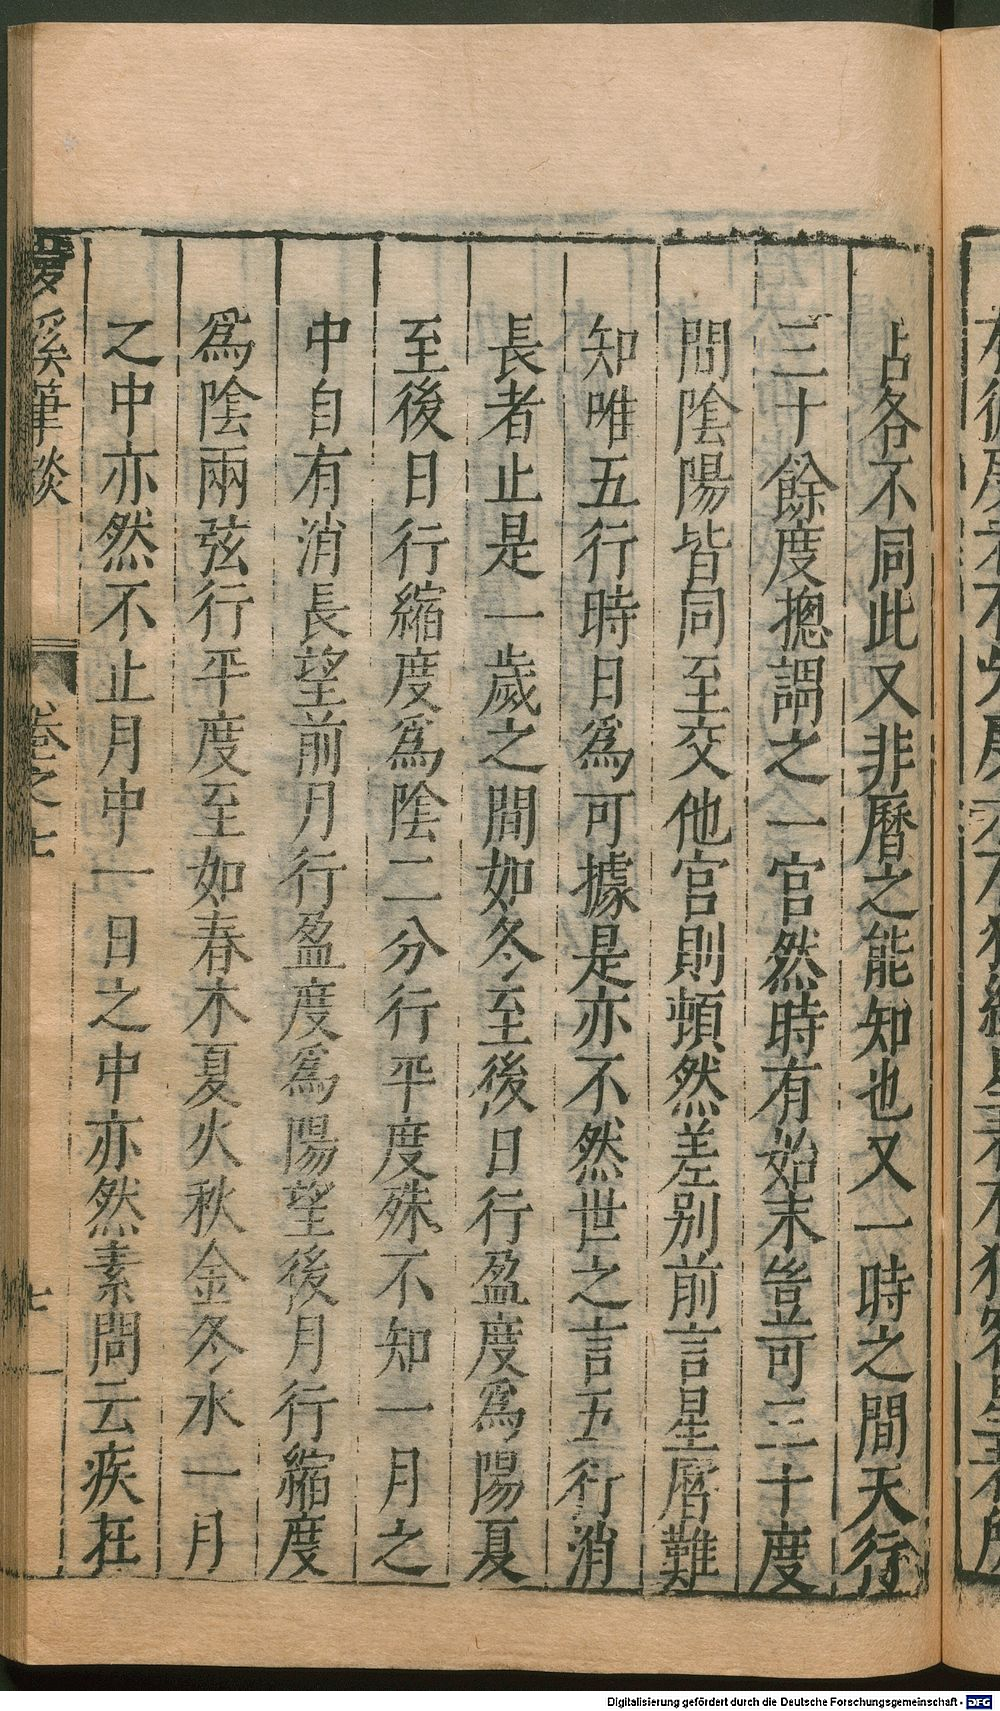 占各不同此又非曆之能知也又一時之間天行
三十餘度摠謂之一宫然時有始末豈可三十度
間隂陽皆同至交他宫則頓然差别前言星曆難
知唯五行時日爲可據是亦不然世之言五行消
長者止是一歲之間如冬至後日行盈度爲陽夏
至後日行縮度爲隂二分行平度殊不知一月之
中自有消長望前月行盈度爲陽望後月行縮度
爲隂兩弦行平度至如春木夏火秋金冬水一月
之中亦然不止月中一日之中亦然素問云疾在
夢溪筆談 卷之七 七
Digitalisierung gefördert durch die Deutsche Forschungsgemeinschaft - DFG